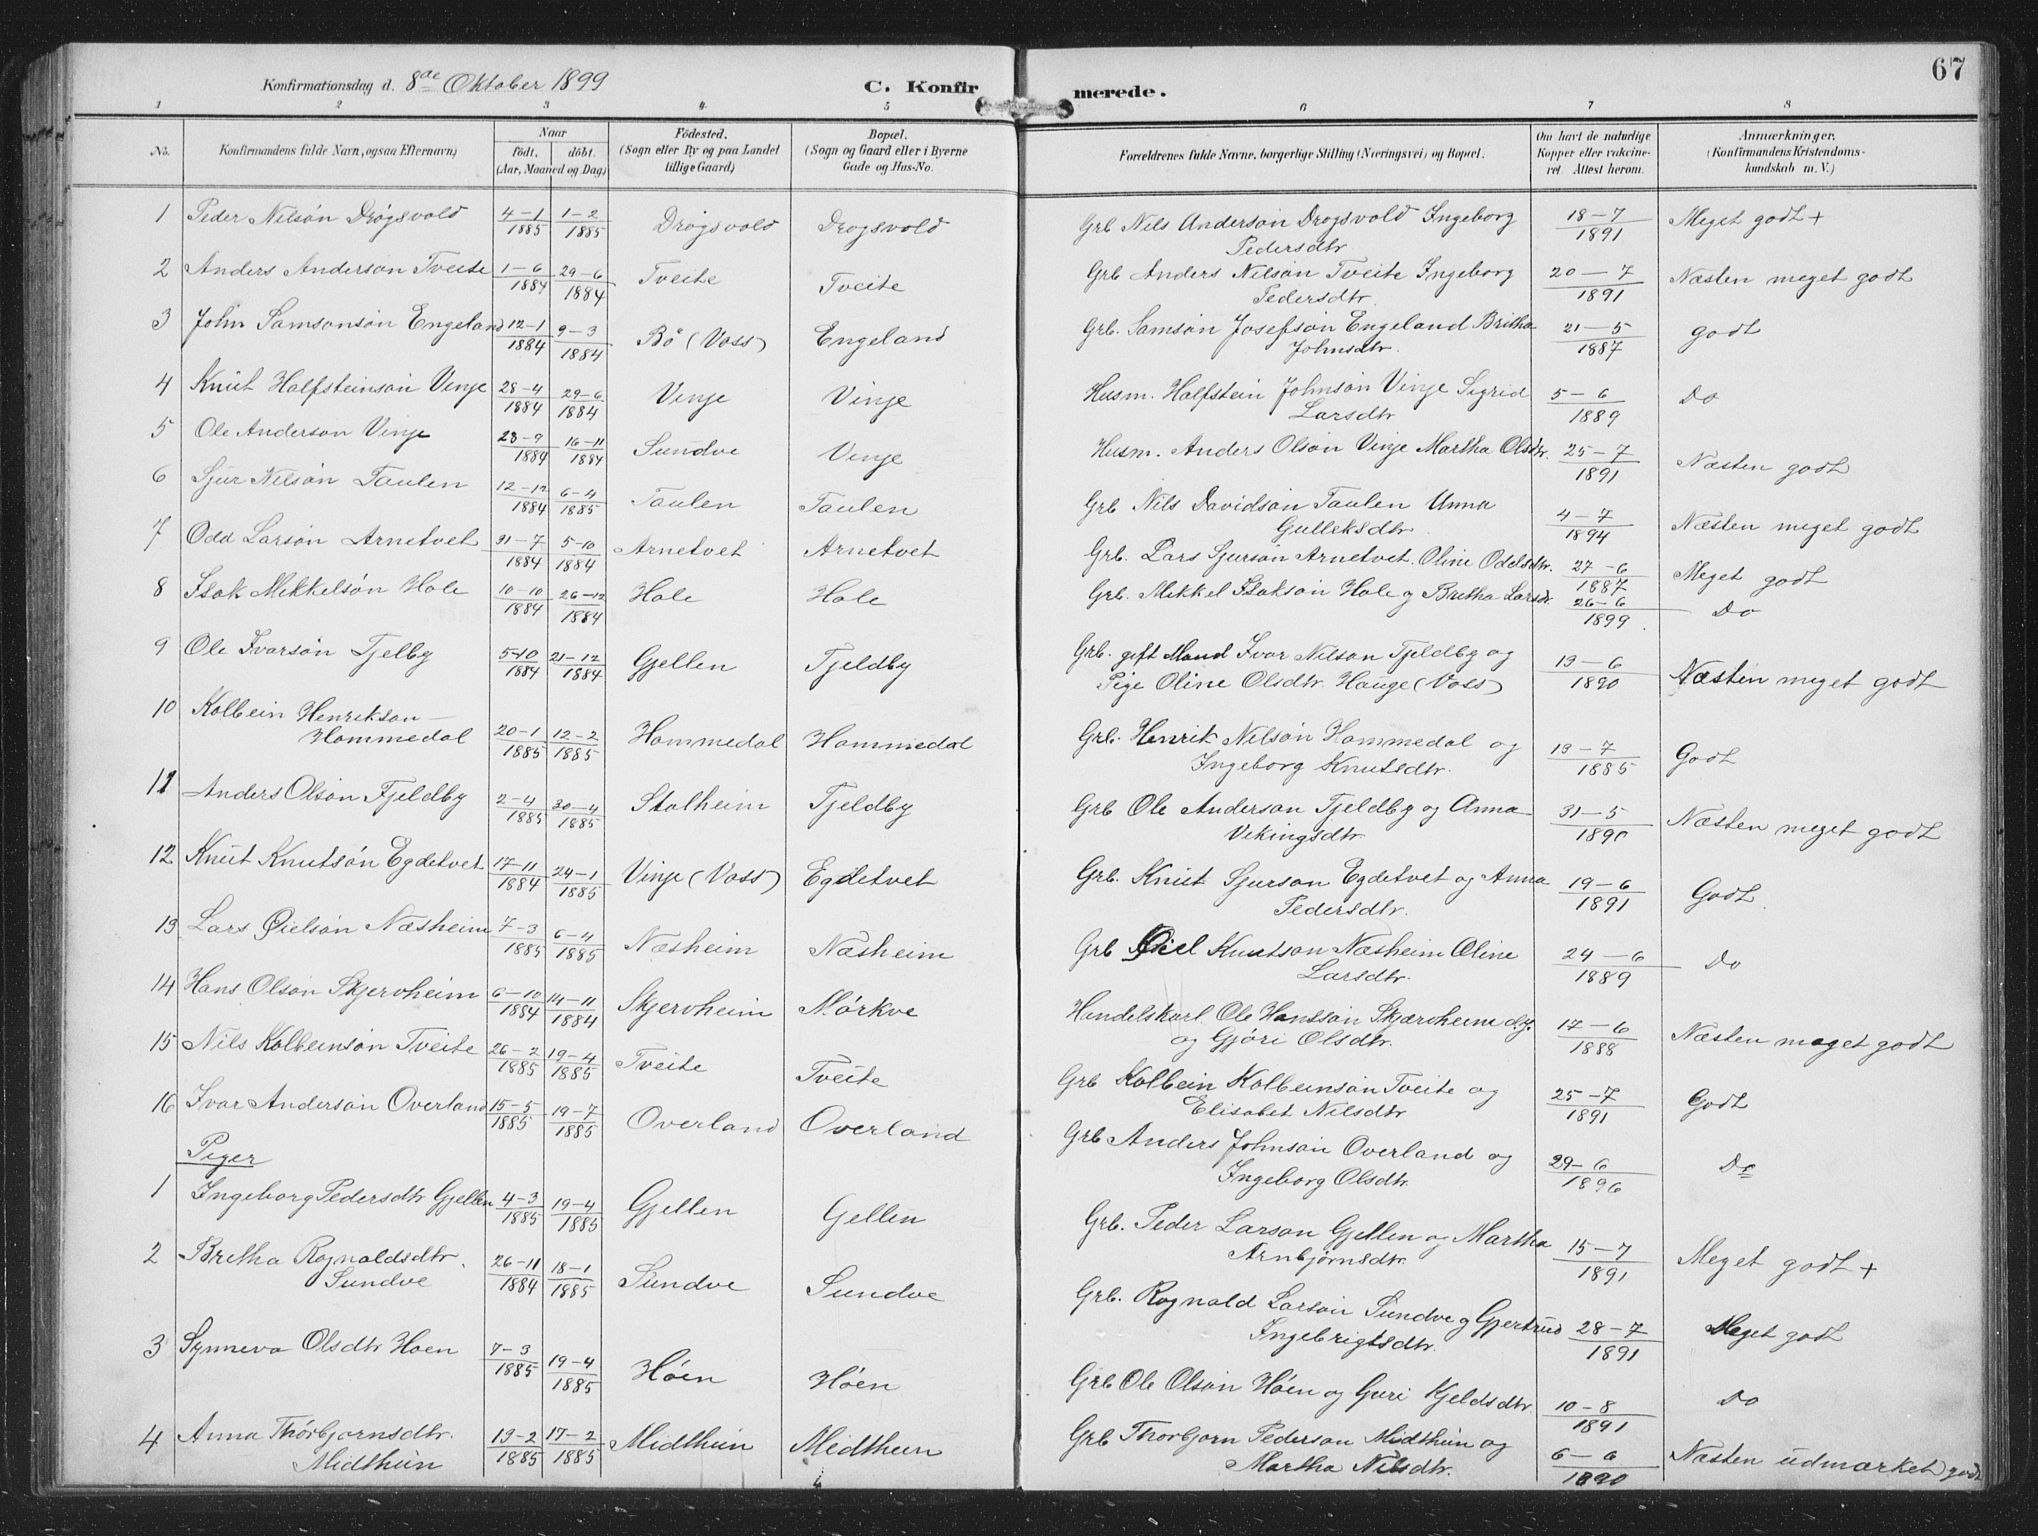 67
Konfirmationsdag d. 8de Oktober 1899 C. Konfirmerede.
1 2 3 4 5 6 7 8
No. Konfirmandens fulde Navn, ogsaa Efternavn) Naar födt, döbt. (Aar, Maaned og Dag) Födested. (Sogn eller By og paa Landet tillige Gaard) Bopæl. (Sogn og Gaard eller i Byerne Gade og Hus-No. Forældrenes fulde Navne, borgerlige Stilling (Næringsvei) og Bopæl. Om havt de naturlige Kopper eller vakcineret. Attest herom. Anmærkninger. (Konfirmandens Kristendomskundskab m.V.)
1 Peder Nilsön Drøgsvold 4-1 1885 1-2 1885 Drøgsvold Drøgsvold Grb Nils Anderson Drøgsvold Ingeborg Pedersdtr 18-7 1891 Meget godt +
2 Anders Anderson Tveite 1-6 1884 29-6 1884 Tveite Tveite Grb Anders Nilson Tveite Ingeborg Pedersdtr. 20-7 1891 Næsten meget godt
3 John Samsonsön Engeland 12-1 1884 9-3 1884 Bö (Voss) Engeland Grb. Samsön Josefsön Engeland Britha Johnsdtr. 21-5 1887 godt
4 Knut Halfsteinson Vinje 28-4 1884 29-6 1884 Vinje Vinje Husm. Halfstein Johnson Vinje Sigrid Larsdtr 5-6 1889 Do
5 Ole Anderson Vinje 23-9 1884 16-11 1884 Sundve Vinje Husm. Anders Olson Vinje Martha Olsdtr. 25-7 1891 Næsten godt
6 Sjur Nilsön Taulen 12-12 1884 6-4 1885 Taulen Taulen Grb Nils Davidson Taulen Unna Gulleksdtr 4-7 1894 Næsten meget godt
7 Odd Larsön Arnetvet 31-7 1884 5-10 1884 Arnetvet Arnetvet Grb. Lars Sjurson Arnetvet. Oline Oddsdtr. 27-6 1887 Meget godt
8 Isak Mikkelsön Hole 10-10 1884 26-12 1884 Hole Hole Grb. Mikkel Isakson Hole og Britha Larsdr 26-6 1899 Do
9 Ole Ivarsön Tjelby 5-10 1884 21-12 1884 Gjellen Tjeldby Grb. gift Mand Ivar Nilson Tjeldby og Pige Oline Olsdtr. Hauge (Voss) 13-6 1890 Næsten meget godt
10 Kolbein Henrikson Hommedal 20-1 1885 12-2 1885 Hommedal Hommedal Grb. Henrik Nilson Hommedal og Ingeborg Knutsdtr. 13-7 1885 Godt
11 Anders Olson Fjeldby 2-4 1885 30-4 1885 Stalheim Tjeldby Grb Ole Anderson Tjeldby og Anna Vekingsdtr 31-5 1890 Næsten meget godt
12 Knut Knutsön Egdetvet 17-11 1884 24-1 1885 Vinje (Voss) Egdetvet Grb. Knut Sjurson Egdetvet og Anna Pedersdtr. 19-6 1891 Godt
13 Lars Øielsön Næsheim 7-3 1885 6-4 1885 Næsheim Næsheim Grb Øiel Knutson Næsheim Oline Larsdtr. 24-6 1889 Do
14 Hans Olson Skjervheim 6-10 1884 14-11 1884 Skjervheim Mörkve Handelskarl Ole Hansson Skjærvheim og Gjöri Olsdtr. 17-6 1888 Næsten meget godt
15 Nils Kolbeinsön Tveite 26-2 1885 19-4 1885 Tveite Tveite Grb Kolbein Kolbeinson Tveite og Elisabet Nilsdtr 25-7 1891 Godt
16 Ivar Anderson Overland 15-5 1885 19-7 1885 Overland Overland Grb Anders Johnson Overland og Ingeborg Olsdtr. 29-6 1896 Do
Piger
1 Ingeborg Pedersdtr Gjellen 4-3 1885 19-4 1885 Gjellen Gellen Grb. Peder Larson Gjellen og Martha Arnbjørnsdtr. 15-7 1891 Meget godt +
2 Britha Rognaldsdtr. Sundve 26-11 1884 18-1 1885 Sundve Sundve Grb. Rognald Larson Sundve og Gjertrud Ingebrigtsdtr. 28-7 1891 Meget godt
3 Synneva Olsdtr Hoen 7-3 1885 19-4 1885 Höen Höen Grb Ole Olson Höen og Guri Kjeldsdtr. 10-8 1891 Do
4 Anna Thorbjornsdtr. Midthun 13-2 1885 17-2 1885 Midthun Midthun Grb Thorbjorn Pederson Midthun og Martha Nilsdtr. 6-6 1890 Næsten udmærket godt